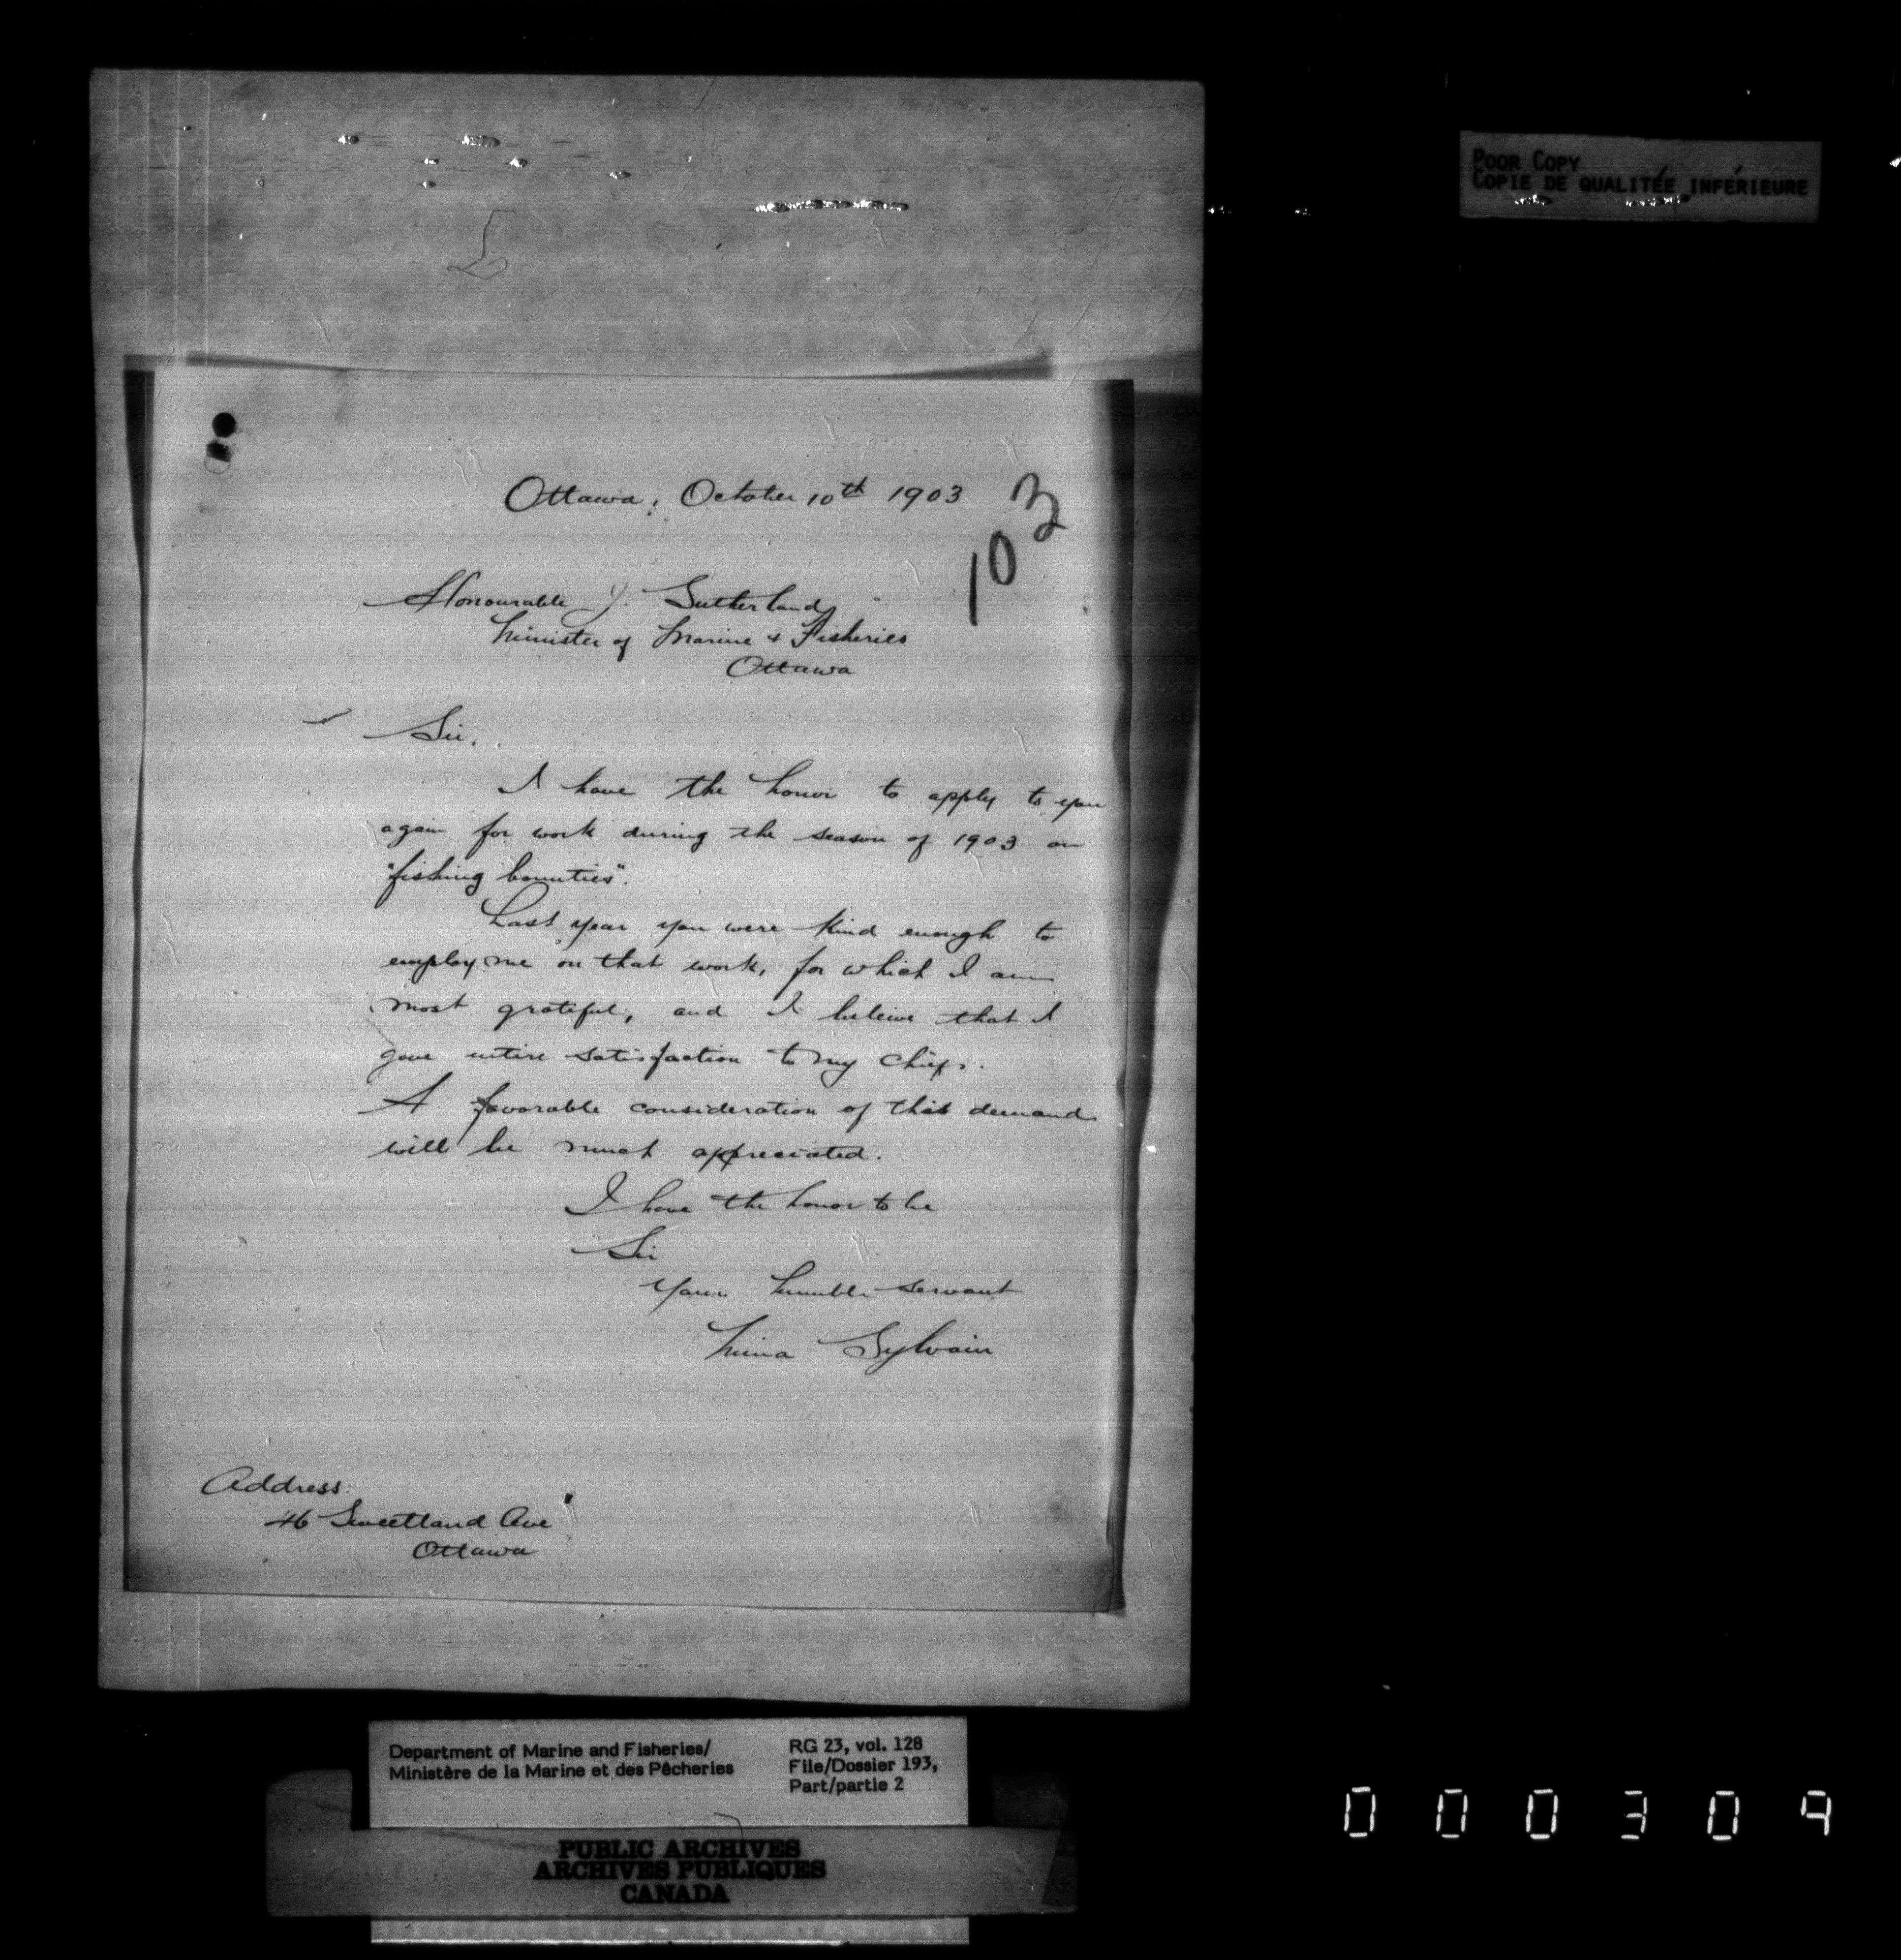 POOR COPY
COPIE DE QUALITÉE INFÉRIEURE
Ottawa, October 10th 1903
103
Honourable J. Sutherland
Minister of Marine & Fisheries
Ottawa
Sir,
I have the honor to apply to you
again for work during the season of 1903 on
"fishing bounties".
Last year you were kind enough to
employ me on that work, for which I am
most grateful, and I beleive that I
gave entire satisfaction to my chiefs.
A favorable consideration of this demand
will be much appreciated.
I have the honor to be
Sir
Your humble servant
Sylvain
Address:
46 Sweetland Ave
Ottawa
Department of Marine and Fisheries/
Ministère de la Marine et des Pêcheries
RG 23, vol. 128
File/Dossier 193,
Part/partie 2
PUBLIC ARCHIVES
ARCHIVES PUBLIQUES
CANADA
000309